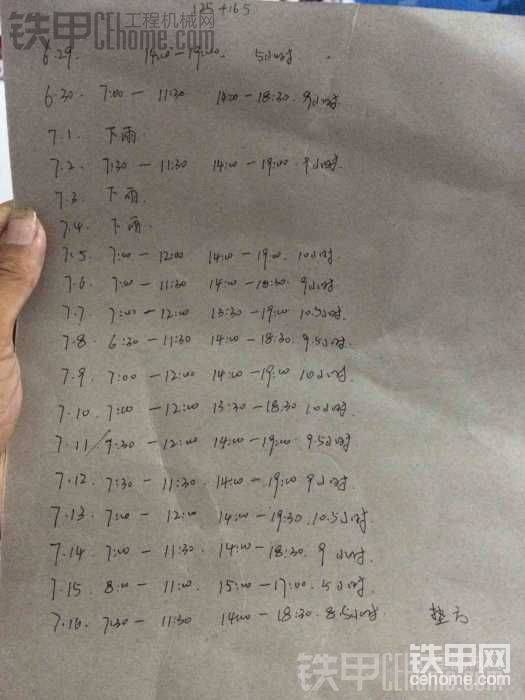 125+165
铁甲工程机械网
CEhome.com
6.29. 14:00-19:00. 5小时.
6.30. 7:00-11:30 14:00-18:30. 9小时.
7.1. 下雨.
7.2. 7:30-11:30 14:00-19:00. 9小时.
7.3. 下雨.
7.4. 下雨.
7.5. 7:00-12:00 14:00-19:00. 10小时.
7.6. 7:00-11:30 14:00-18:30. 9小时.
7.7. 7:00-12:00 13:30-19:00 10.5小时.
7.8. 6:30-11:30 14:00-18:30. 9.5小时.
7.9. 7:00-12:00 14:00-19:00 10小时.
7.10. 7:00-12:00 13:30-18:30 10小时.
7.11/ 7:30-12:00 14:00-19:00. 9.5小时
7.12. 7:30-11:30. 14:00-19:00 9小时.
7.13. 7:00-12:00 14:00-19:30. 10.5小时.
7.14. 7:00-11:30. 14:00-18:30. 9小时.
7.15 8:00-11:00. 15:00-17:00. 5小时.
7.16. 7:30-11:30 14:00-18:30. 8.5小时.
铁甲网
cehome.com